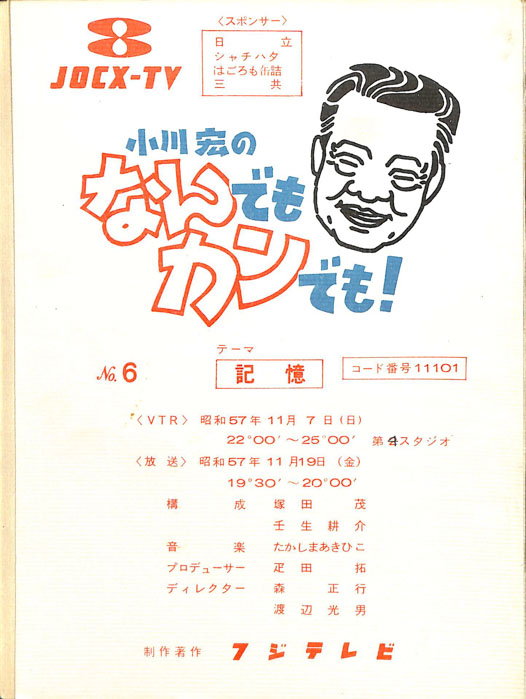 〈スポンサー〉
日立
シャチハタ
はごろも缶詰
三共
JOCX-TV
小川宏の
なんでも
カンでも!
テーマ
No.6
記憶
コード番号11101
〈VTR〉 昭和57年11月7日(日)
22°00′～25°00′ 第4スタジオ
〈放送〉 昭和57年11月19日(金)
19°30′～20°00′
構成 塚田茂
壬生耕介
音楽 たかしまあきひこ
プロデューサー 疋田拓
ディレクター 森正行
渡辺光男
制作著作 フジテレビ